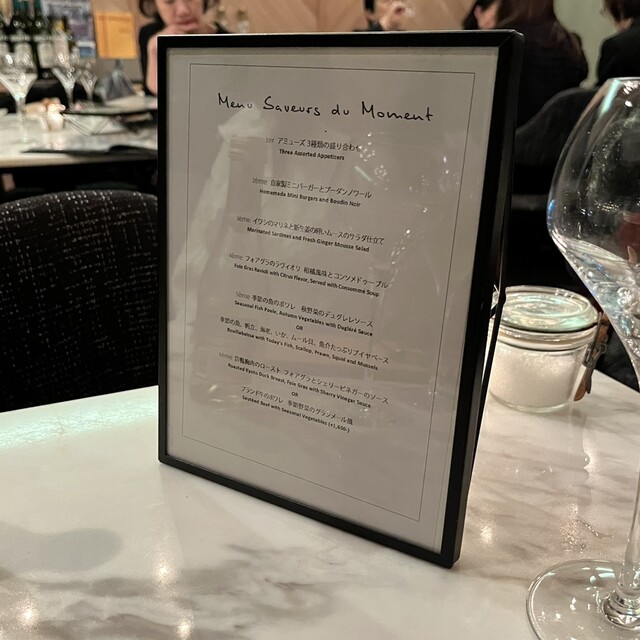 Menu Saveurs du Moment
1er アミューズ 3種類の盛り合わせ
Three Assorted Appetizers
2ème 自家製ミニバーガーとブーダンノワール
Homemade Mini Burgers and Boudin Noir
3ème イワシのマリネと新生姜の軽いムースのサラダ仕立て
Marinated Sardines and Fresh Ginger Mousse Salad
4ème フォアグラのラヴィオリ 柑橘風味とコンソメドゥーブル
Foie Gras Ravioli with Citrus Flavor, Served with Consommé Soup
5ème 季節の魚のポワレ 秋野菜のデュグレレソース
Seasonal Fish Poele, Autumn Vegetables with Dugléré Sauce
OR
季節の魚、帆立、海老、いか、ムール貝、魚介たっぷりブイヤベース
Bouillabaisse with Today's Fish, Scallop, Prawn, Squid and Mussels
6ème 京鴨胸肉のロースト フォアグラとシェリービネガーのソース
Roasted Kyoto Duck Breast, Foie Gras with Sherry Vinegar Sauce
OR
ブランド牛のポワレ 季節野菜のグランメール風
Sautéed Beef with Seasonal Vegetables (+1,650-)